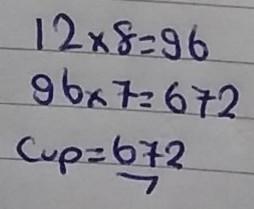 12×8=96
96×7=672
Cup=672